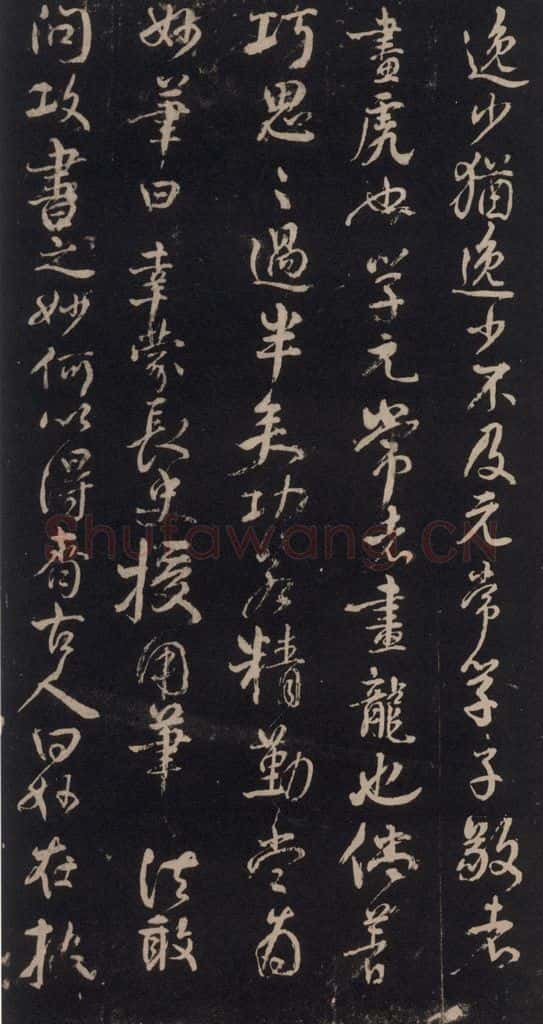 逸少猶逸少不及元常學子敬者
畫虎也學元常者畫龍也倘著
巧思〻過半矣功若精勤當為
妙筆曰幸蒙長史授用筆法敢
問攻書之妙何以得齊古人曰妙在執
Shufawang.CN